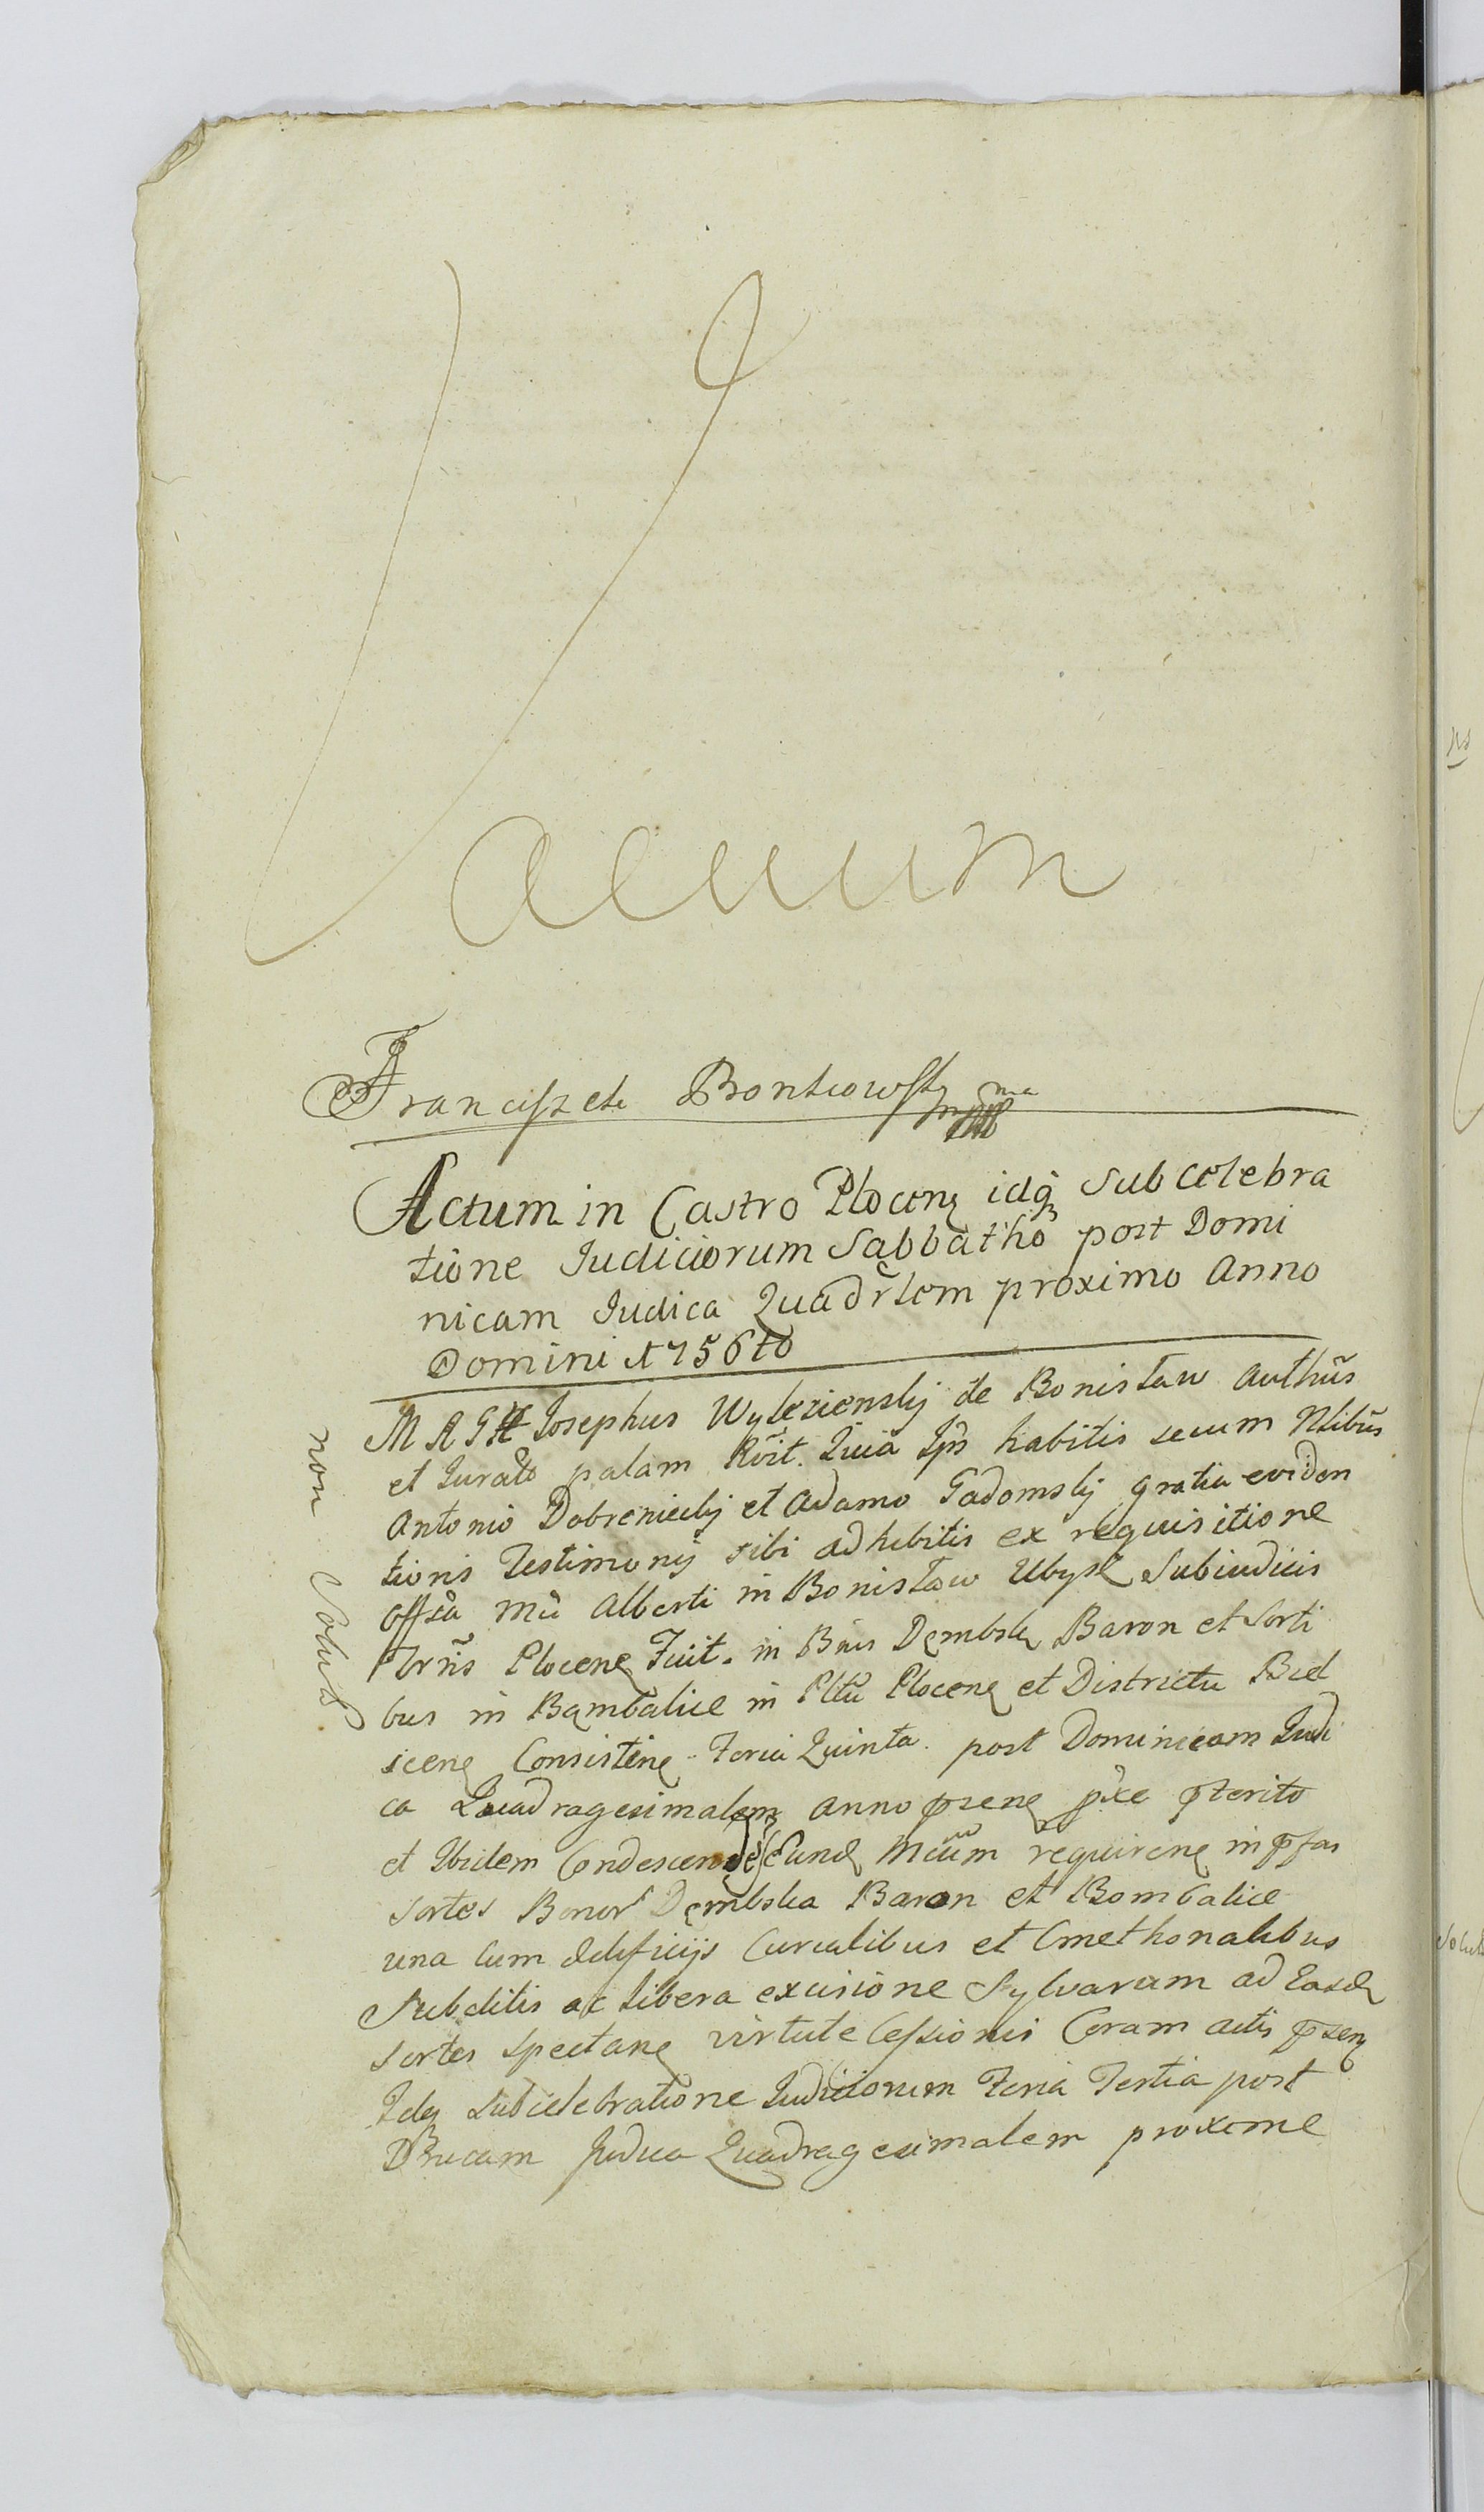 Vacuum
Franciszek Bontkowsky mpp
Actum in Castro Plocen idq Sub Celebra
tione Iudiciorum Sabbatho post Domi
nicam Iudica Quadrlem proximo Anno
Domini 1756to
M R G Josephus Wyleziensky de Bonisław Authūs
et Jurato palam Rōit. Quia Ips habitis secum Nlibūs
Antonio Dobreniecky et Adamo Gadomsky gratia eviden
tioris Testimonij sibi adhibitis ex requisitione
offsa Mci Alberti in Bonisław Ubysz Subiudicis
Trrñs Plocen Fuit. in Bnis Dembsk Baron et Sorti
bus in Bąmbalice in Pltū Plocen et Districtu Biel
scen Consisten Feria Quinta post Dominicam Judi
ca Quadragesimalem anno psen pxe pterito
et Ibidem Condescen Eund Mcum requiren in pfas
Sortes Bonor Dembska Baron et Bombalice
una Cum Aedificijs Curialibus et Cmethonalibus
Subditis ac libera excisione Sylvarum ad Easd
Sortes Spectan virtute Cessionis Coram actis psen
Idq Sub celebratione Judiciorum Feria Tertia post
Dnicam Judica Quadragesimalem proxime
non Solut